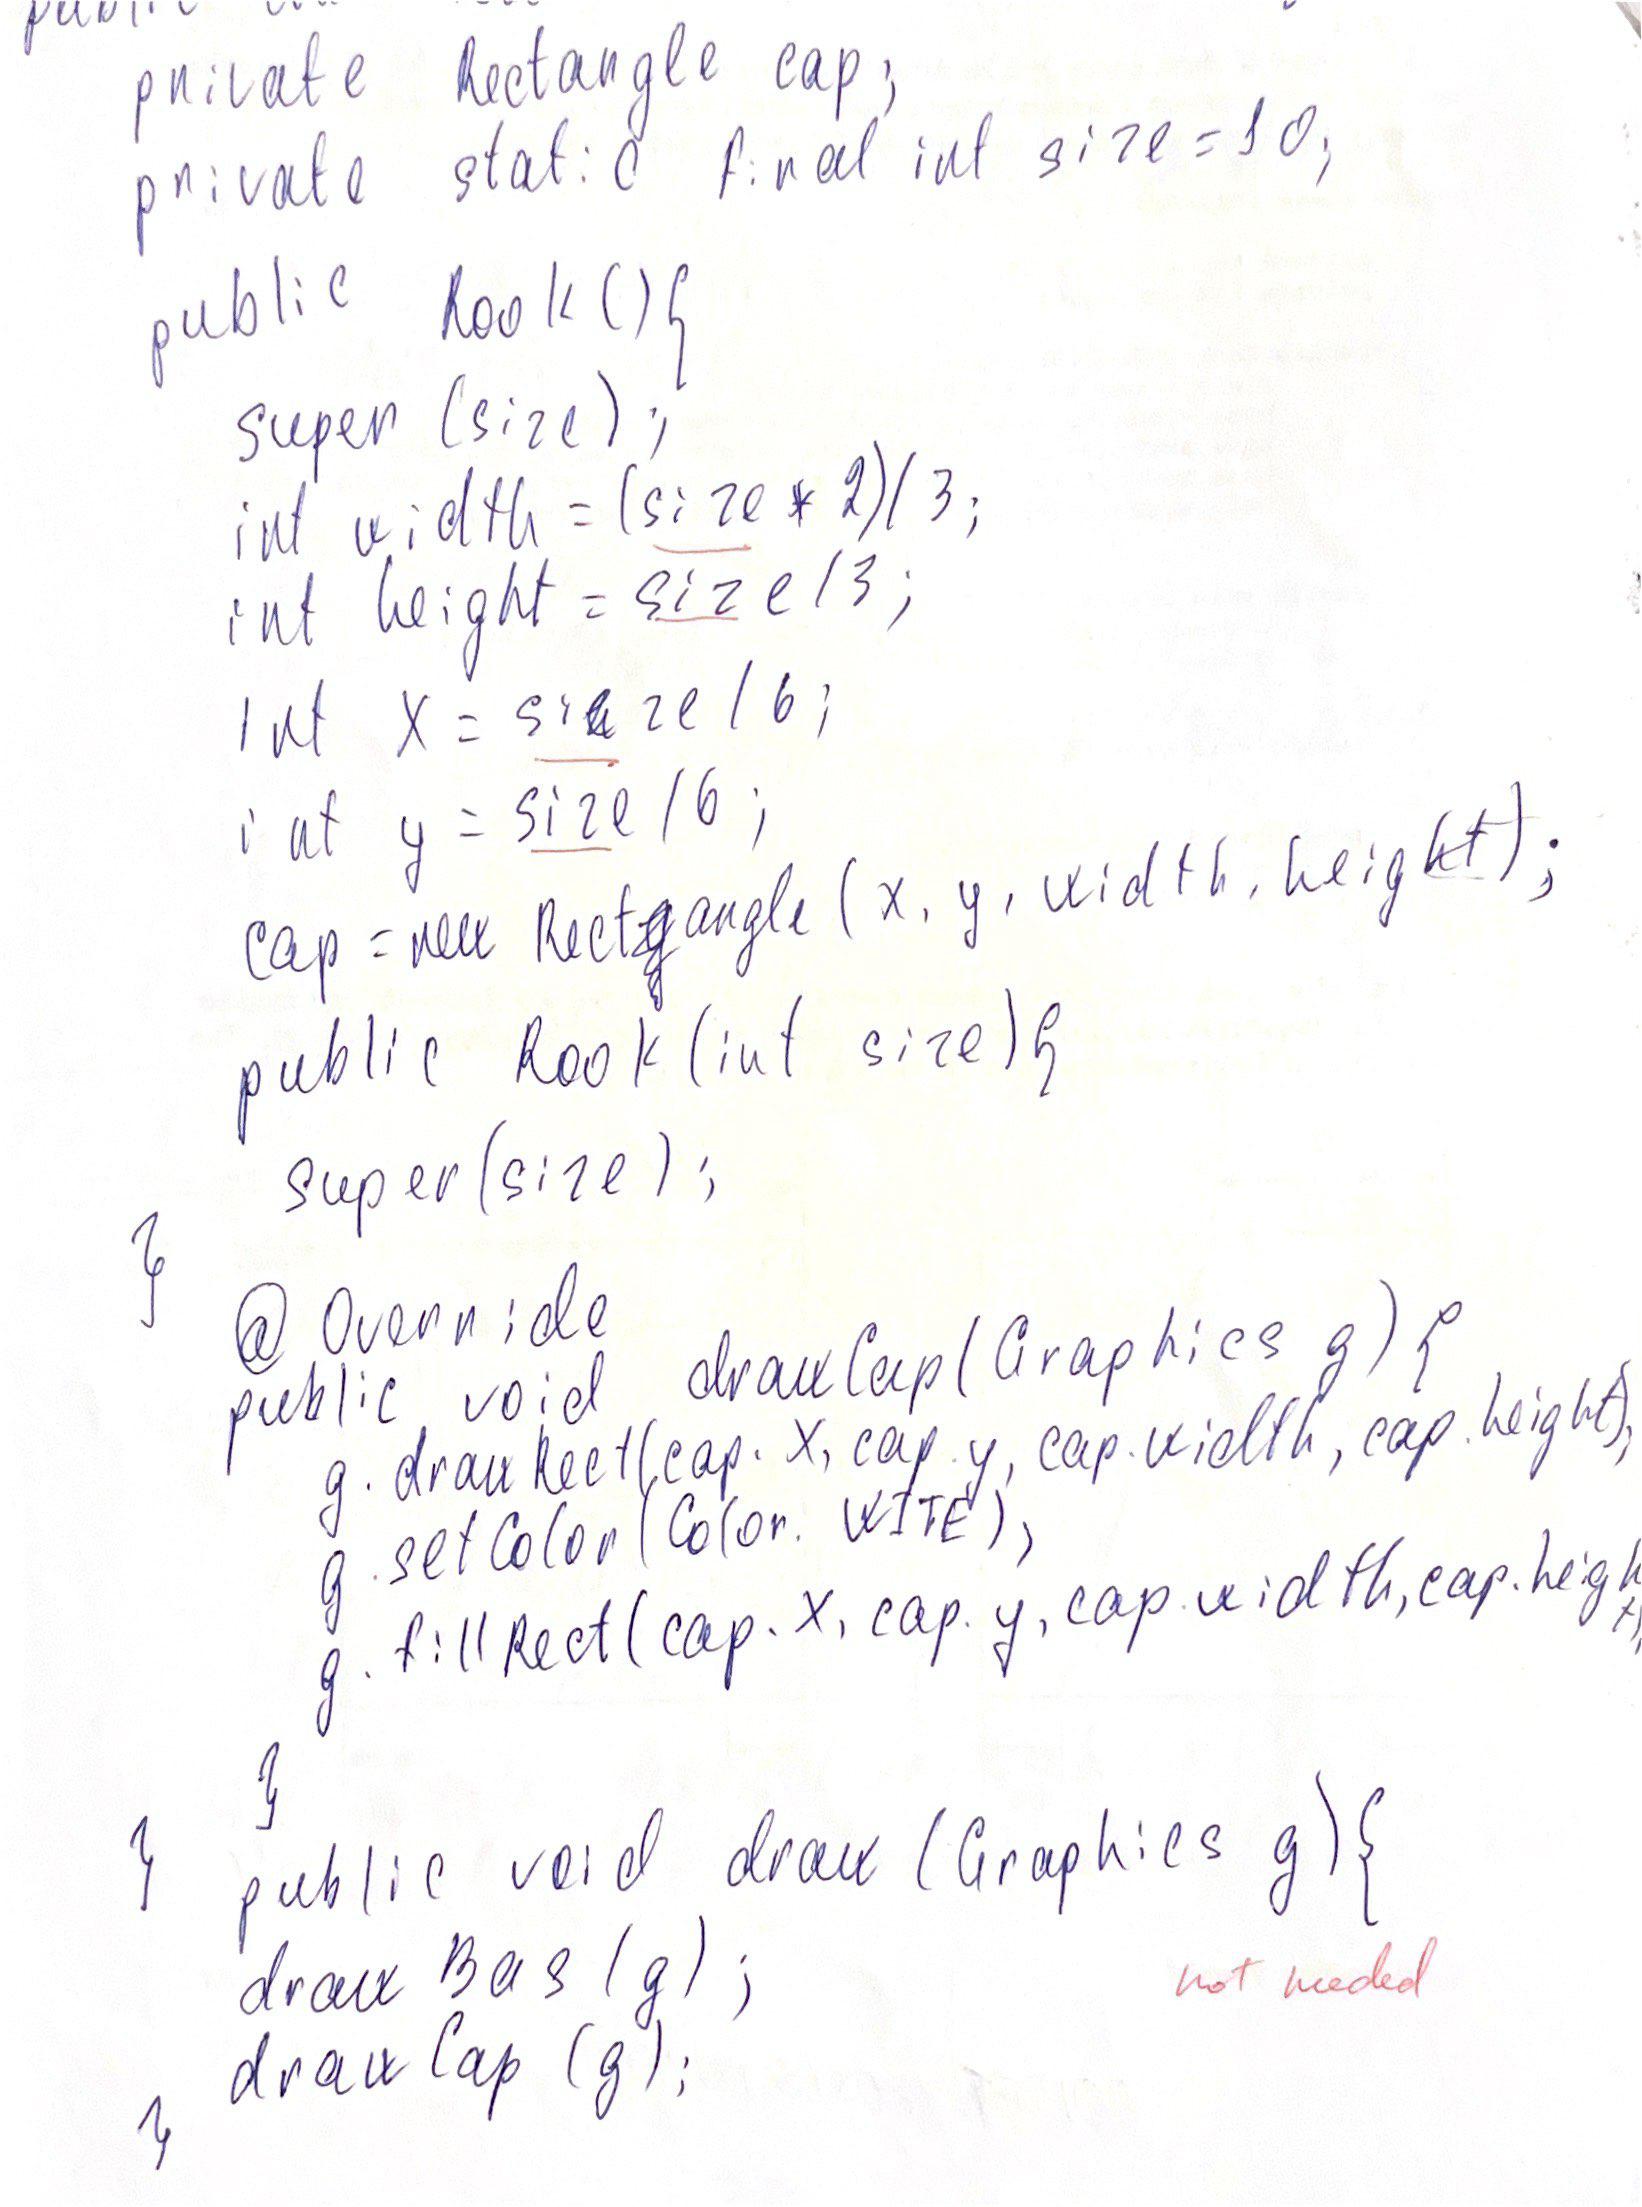 public
private Rectangle cap;
private static final int size=10;
public Rook(){
super (size);
int width = (size * 2)/3;
int height = size/3;
int x = size/6;
int y = size/6;
cap = new Rectangle (x, y, width, height);
public Rook(int size){
super(size);
}
@Override
public void drawCap(Graphics g){
g.drawRect(cap.x, cap.y, cap.width, cap.height);
g.setColor(Color.WITE);
g.fillRect(cap.x, cap.y, cap.width, cap.height
}
} public void draw (Graphics g){
draw Bas (g);
not needed
draw Cap (g);
}